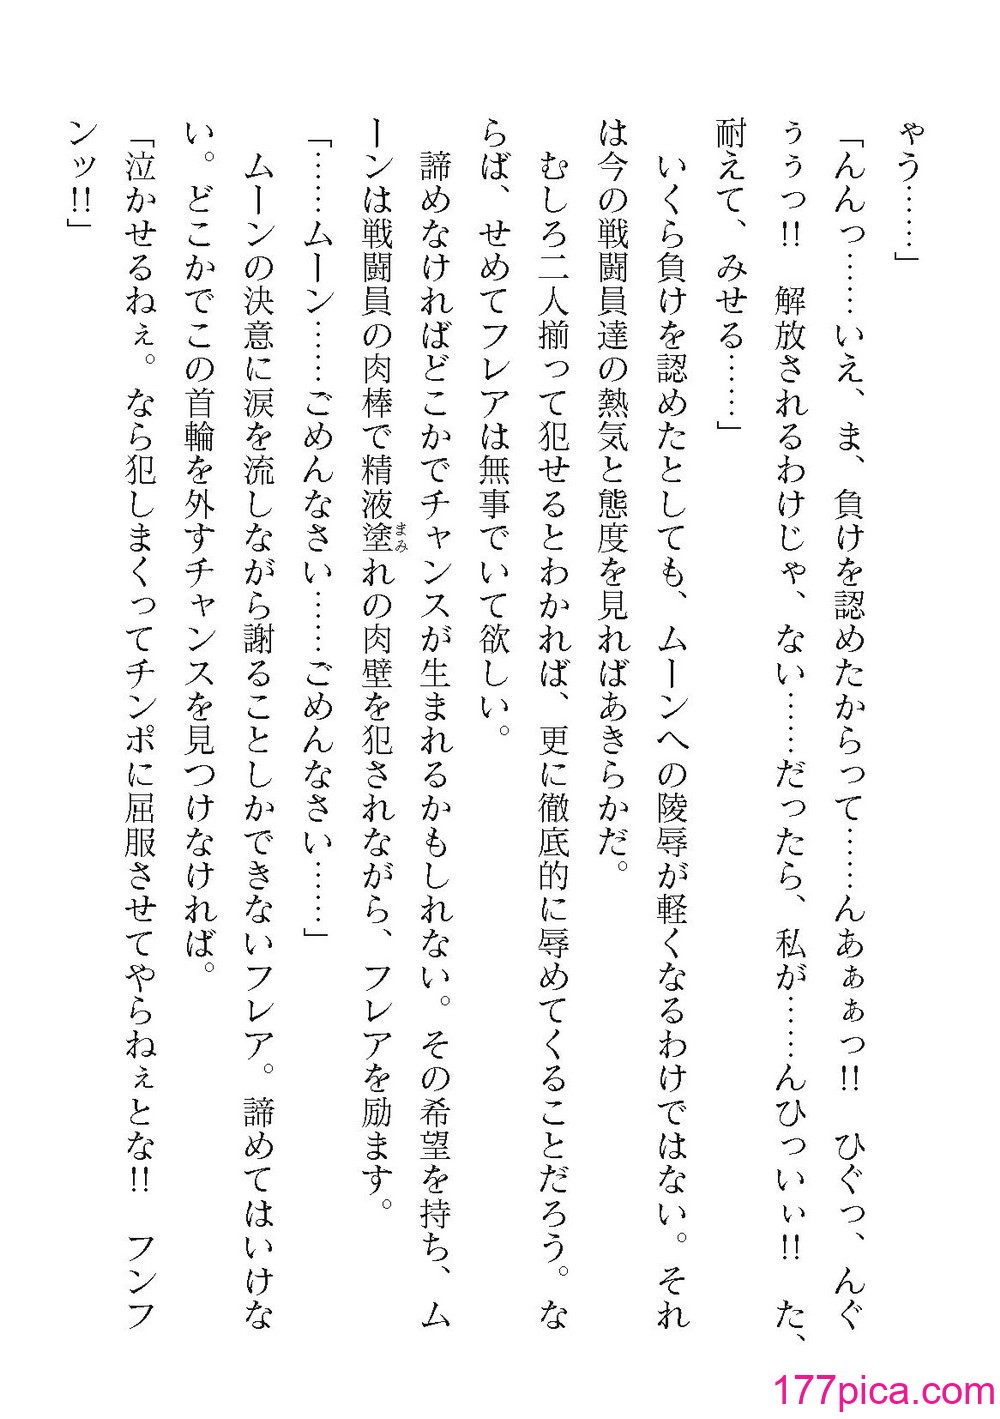 ゃう……」
「んんっ……いえ、ま、負けを認めたからって……んあぁぁっ!!　ひぐっ、んぐ
ぅぅっ!!　解放されるわけじゃ、ない……だったら、私が……んひっいぃ!!　た、
耐えて、みせる……」
　いくら負けを認めたとしても、ムーンへの陵辱が軽くなるわけではない。それ
は今の戦闘員達の熱気と態度を見ればあきらかだ。
　むしろ二人揃って犯せるとわかれば、更に徹底的に辱めてくることだろう。な
らば、せめてフレアは無事でいて欲しい。
　諦めなければどこかでチャンスが生まれるかもしれない。その希望を持ち、ム
ーンは戦闘員の肉棒で精液塗まみれの肉壁を犯されながら、フレアを励ます。
「……ムーン……ごめんなさい……ごめんなさい……」
　ムーンの決意に涙を流しながら謝ることしかできないフレア。諦めてはいけな
い。どこかでこの首輪を外すチャンスを見つけなければ。
「泣かせるねぇ。なら犯しまくってチンポに屈服させてやらねぇとな!!　フンフ
ンッ!!」
177pica.com